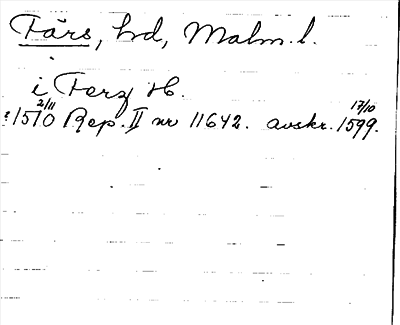 Färs, hd, Malm. l.
i Ferz H.
1510 2/11 Rep. II nr 11642. avskr. 17/10 1599.